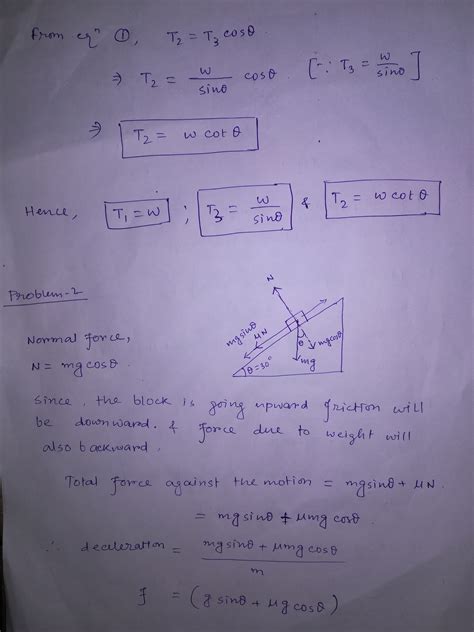 From eqn ①, T₂ = T₃ cosθ
⇒ T₂ = w/sinθ cosθ [∵ T₃ = w/sinθ]
⇒ T₂ = w cot θ
Hence, T₁ = w ; T₃ = w/sinθ & T₂ = w cot θ
Problem-2
Normal force,
N = mg cosθ
N
mg sinθ
μN
θ
mg cosθ
mg
θ = 30°
since, the block is going upward friction will
be downward. & force due to weight will
also backward.
Total force against the motion = mg sinθ + μN.
= mg sinθ + μmg cosθ.
∴ deceleration = mg sinθ + μmg cosθ / m
f = (g sinθ + μg cosθ)